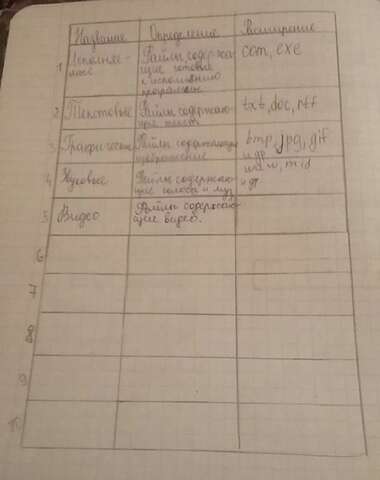 Название Определение Расширение
1 Исполняемые Файлы содержащие готовые к исполнению программы com, exe
2 Текстовые Файлы содержающие текст txt, doc, rtf
3 Графические Файлы содержающие изображение bmp, jpg, gif и др
4 Звуковые Файлы содержающие голоса и муз wav, mid и др
5 Видео Файлы содержающие видео.
6
7
8
9
10